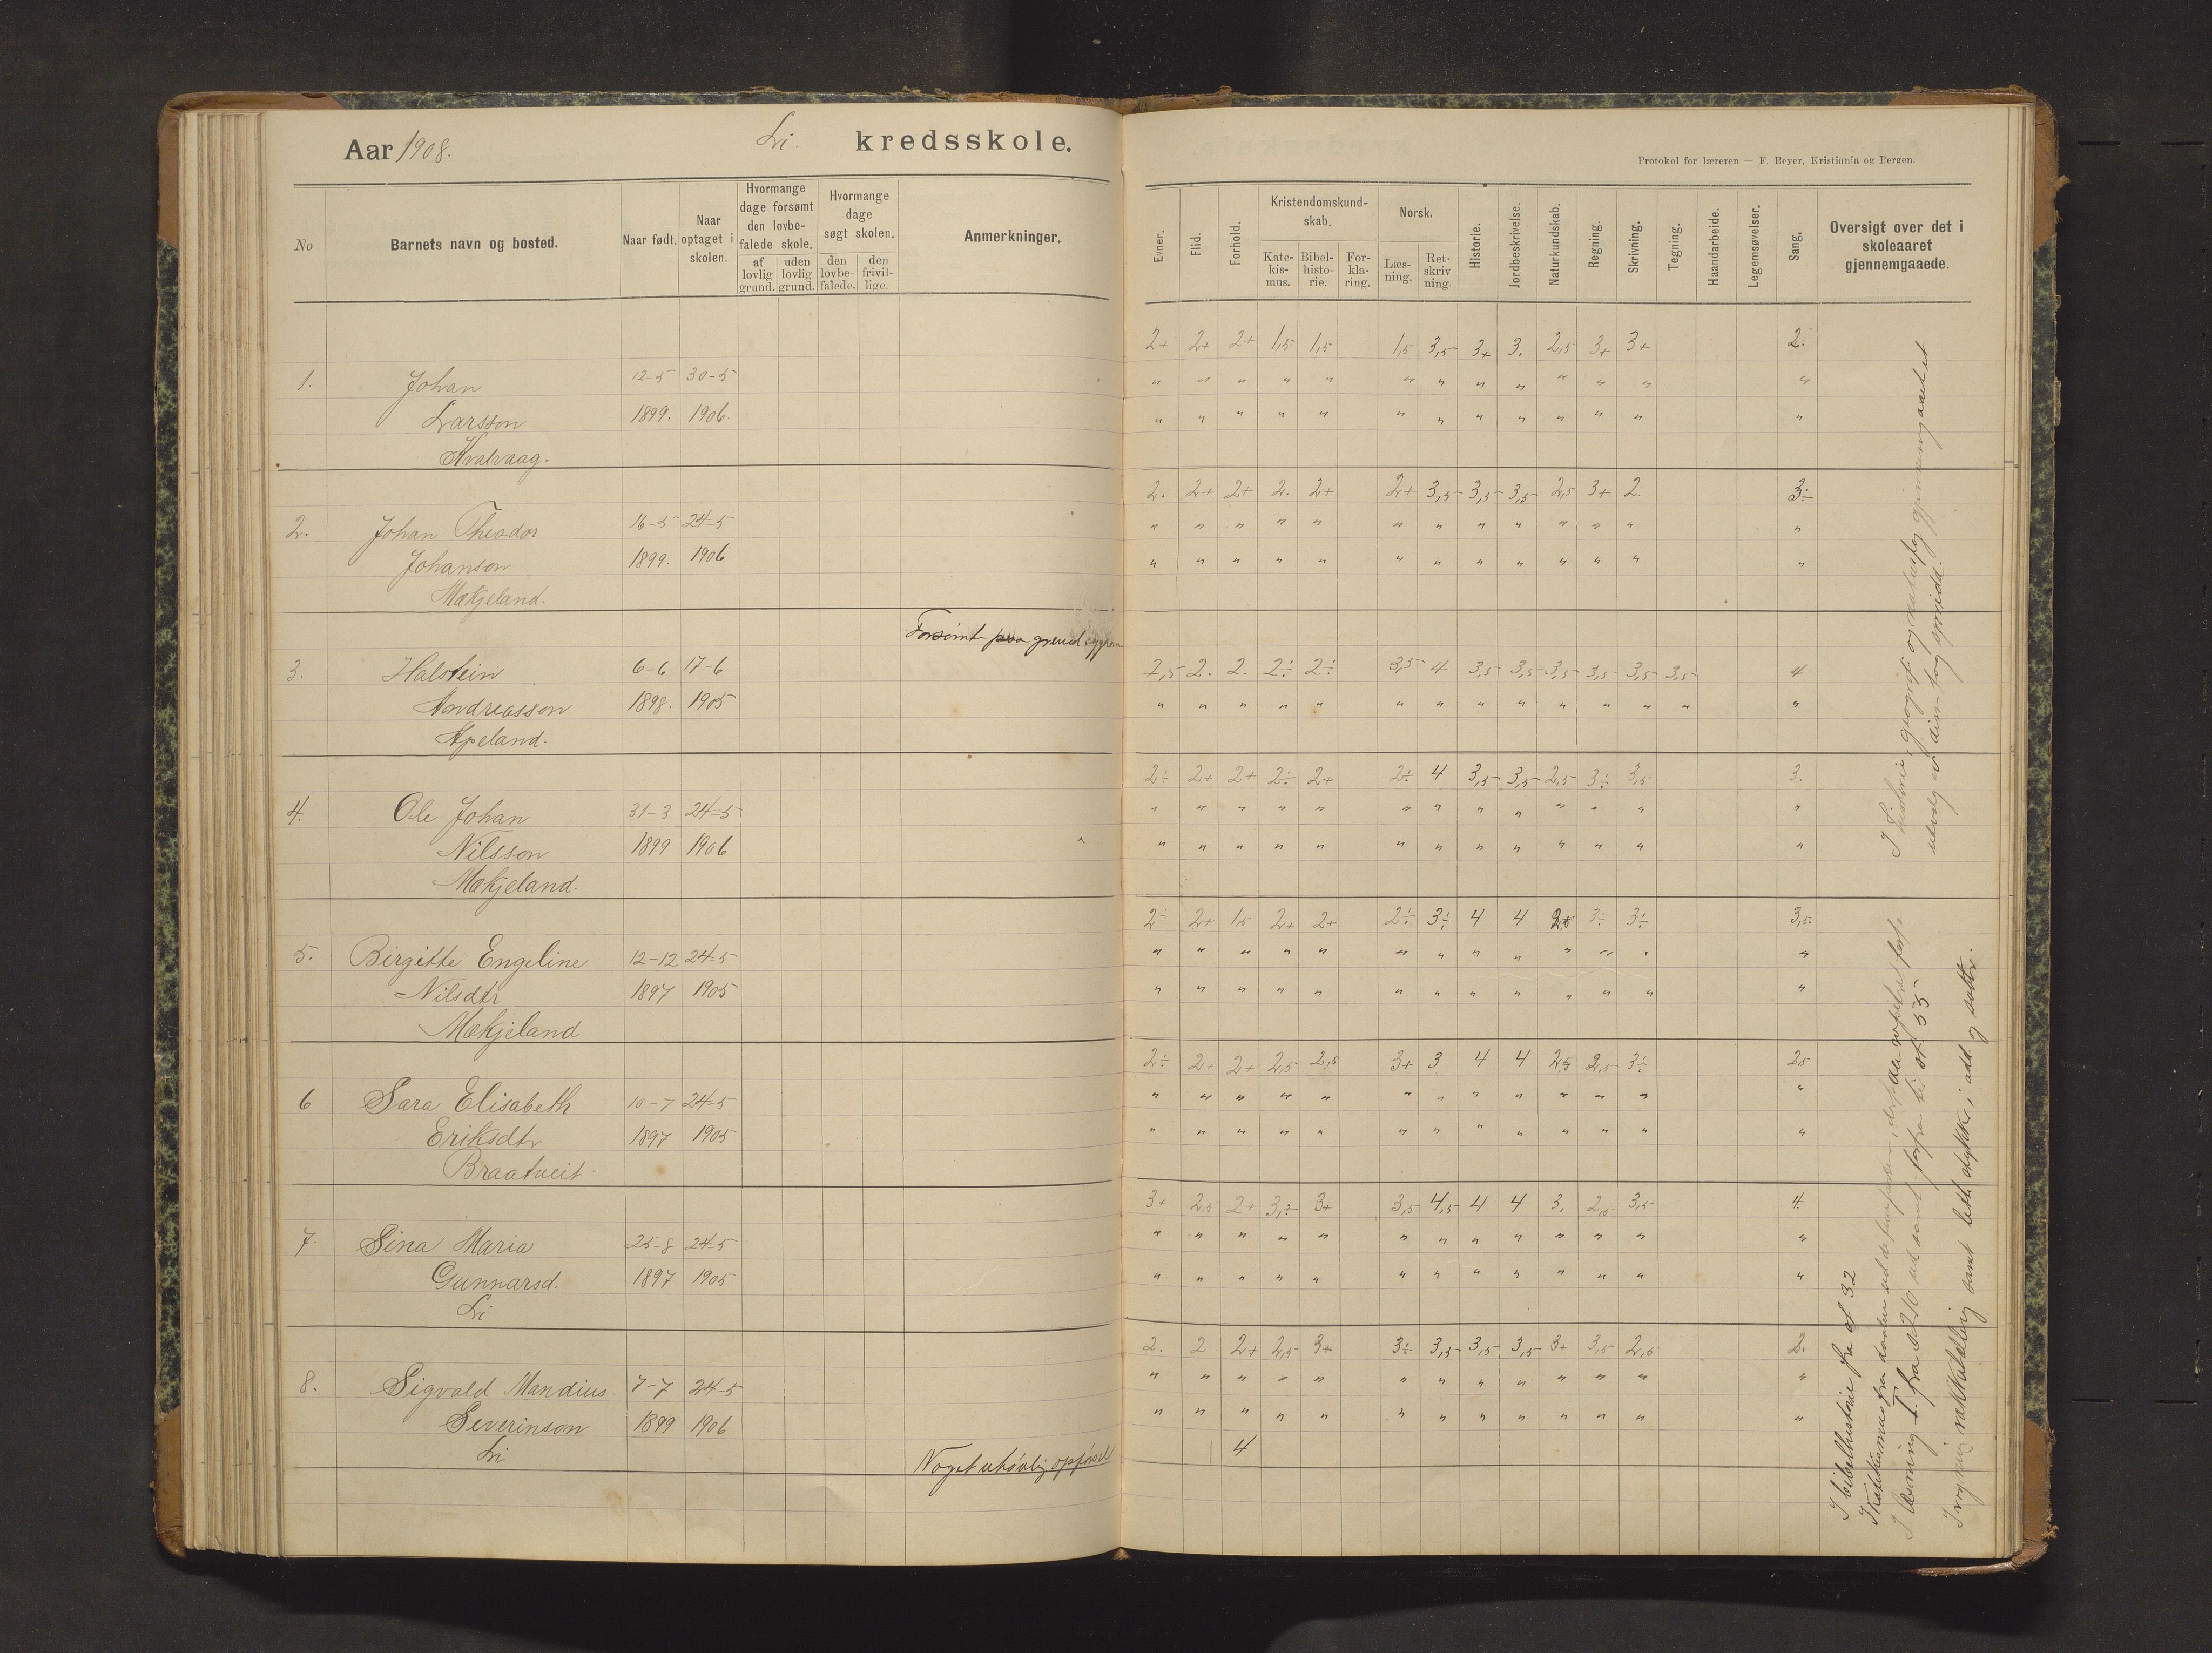 Aar 1908.
Li. kredsskole.
No
Barnets navn og bosted.
Naar født.
Naar optaget i skolen.
Hvormange dage forsømt den lovbefalede skole.
af lovlig grund.
uden lovlig grund.
Hvormange dage søgt skolen.
den lovbefalede.
den frivillige.
Anmerkninger.
1. Johan 12-5 30-5
Larsson 1899. 1906.
Kvalvaag.
2. Johan Theodor 16-5 24-5
Johanson 1899. 1906
Mækjeland.
Forsømt paa grund
3. Halstein 6-6 17-6
Andreasson 1898. 1905
Apeland.
4. Ole Johan 31-3 24-5
Nilsson 1899 1906
Mækjeland.
5. Birgitte Engeline 12-12 24-5
Nilsdtr 1897 1905
Mækjeland
6 Sara Elisabeth 10-7 24-5
Eriksdtr 1897 1905
Braatveit.
7. Sina Maria 25-8 24-5
Gunnarsd. 1897 1905
Li
8. Sigvald Mandius 7-7 24-5
Severinson 1899 1906
Li
Noget uhøvlig opførsel
Protokol for læreren — F. Beyer, Kristiania og Bergen.
Evner.
Flid.
Forhold.
Kristendomskundskab.
Katekismus.
Bibelhistorie.
Forklaring.
Norsk.
Læsning.
Retskrivning.
Historie.
Jordbeskrivelse.
Naturkundskab.
Regning.
Skrivning.
Tegning.
Haandarbeide.
Legemsøvelser.
Sang.
Oversigt over det i skoleaaret gjennemgaaede.
2+ 2+ 2+ 1,5 1,5 1,5 3,5 3+ 3. 2,5 3+ 3+ 2.
" " " " " " " " " " " " "
" " " " " " " " " " " " "
2. 2+ 2+ 2. 2+ 2+ 3,5 3,5 3,5 2,5 3+ 2. 3÷
" " " " " " " " " " " " "
" " " " " " " " " " " " "
2,5 2. 2. 2÷ 2÷ 3,5 4 3,5 3,5 3,5 3,5 3,5 3,5 4
" " " " " " " " " " " " " "
2÷ 2+ 2+ 2÷ 2+ 2÷ 4 3,5 3,5 2,5 3÷ 3,5 3.
" " " " " " " " " " " " "
" " " " " " " " " " " " "
2÷ 2+ 1,5 2+ 2+ 2÷ 3÷ 4 4 2,5 3÷ 3÷ 3,5
" " " " " " " " " " " " "
" " " " " " " " " " " " "
2÷ 2+ 2+ 2,5 2,5 3+ 3 4 4 2,5 2,5 3÷ 2,5
" " " " " " " " " " " " "
" " " " " " " " " " " " "
3+ 2,5 2+ 3,÷ 3+ 3,5 4,5 4 4 3. 2,5 3,5 4
" " " " " " " " " " " " "
" " " " " " " " " " " " "
2. 2 2+ 2,5 3+ 3÷ 3,5 3,5 3,5 3+ 3,5 2,5 2.
" " " " " " " " " " " " "
" " " " " " " " " " " " "
4
I bibelhistorie fra st 32
I katekismus fra daaben ud
I læsning I fra s 210 ud samt forfra til st. 55
I regning samt lette stykker i add og subtr.
I historie, geografi og naturfag gjennemgaaet et
udvalg